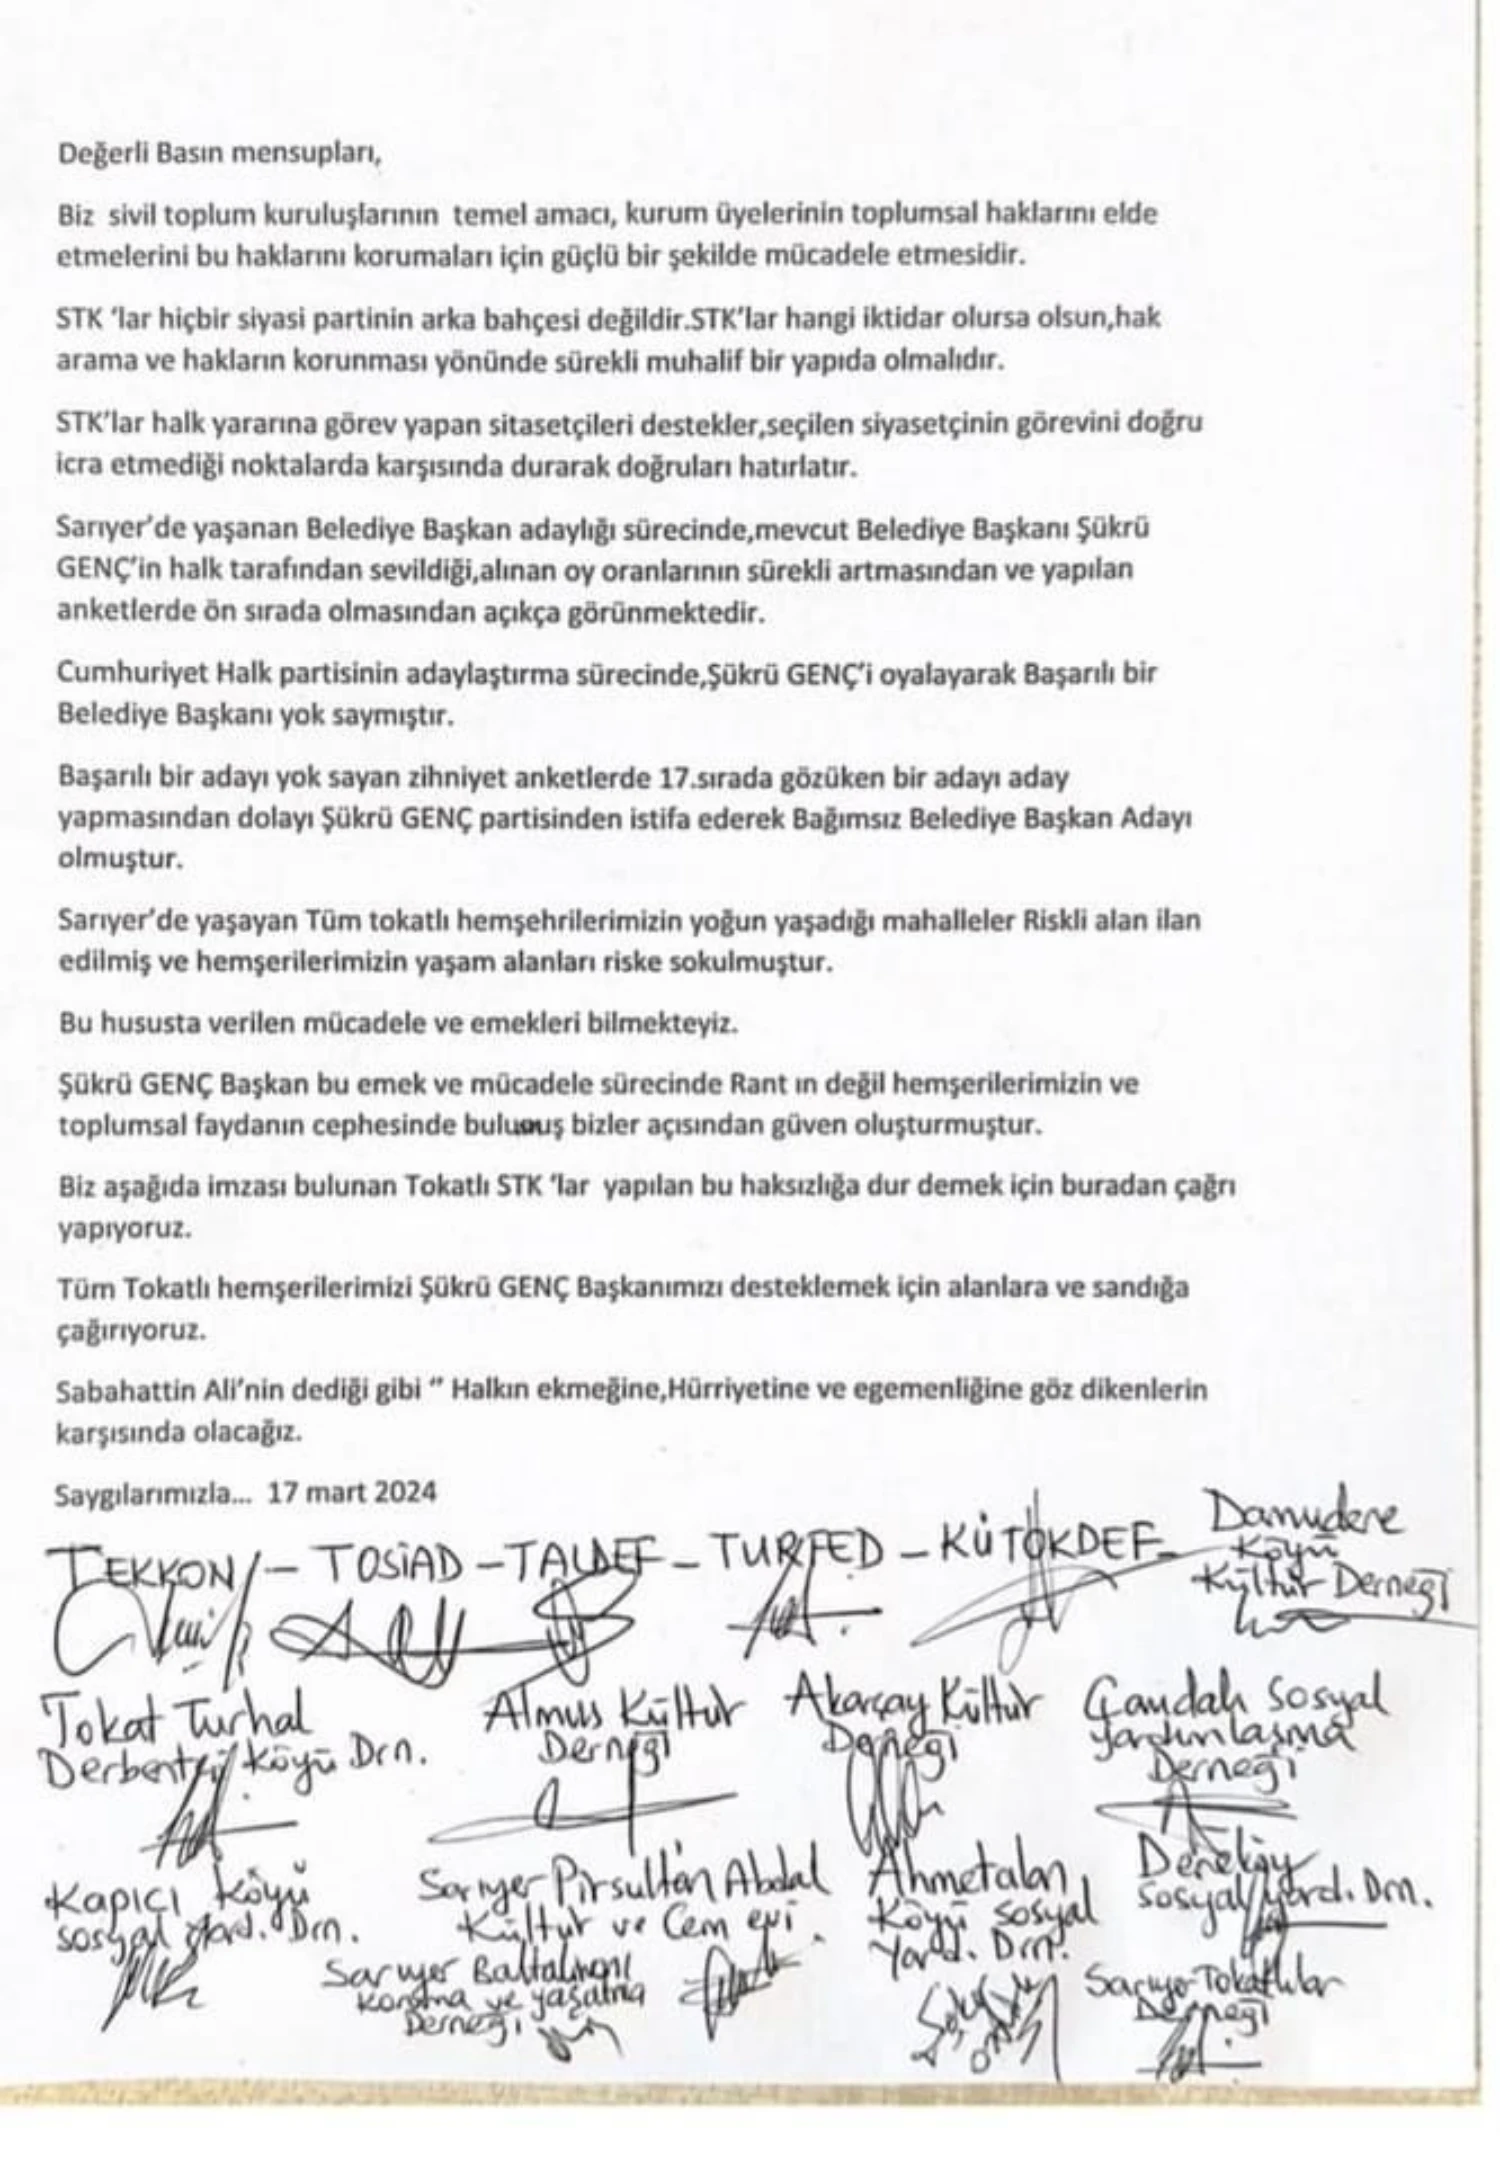 Değerli Basın mensupları,
Biz sivil toplum kuruluşlarının temel amacı, kurum üyelerinin toplumsal haklarını elde
etmelerini bu haklarını korumaları için güçlü bir şekilde mücadele etmesidir.
STK 'lar hiçbir siyasi partinin arka bahçesi değildir.STK'lar hangi iktidar olursa olsun,hak
arama ve hakların korunması yönünde sürekli muhalif bir yapıda olmalıdır.
STK'lar halk yararına görev yapan sitasetçileri destekler,seçilen siyasetçinin görevini doğru
icra etmediği noktalarda karşısında durarak doğruları hatırlatır.
Sarıyer'de yaşanan Belediye Başkan adaylığı sürecinde,mevcut Belediye Başkanı Şükrü
GENÇ'in halk tarafından sevildiği,alınan oy oranlarının sürekli artmasından ve yapılan
anketlerde ön sırada olmasından açıkça görünmektedir.
Cumhuriyet Halk partisinin adaylaştırma sürecinde,Şükrü GENÇ'i oyalayarak Başarılı bir
Belediye Başkanı yok saymıştır.
Başarılı bir adayı yok sayan zihniyet anketlerde 17.sırada gözüken bir adayı aday
yapmasından dolayı Şükrü GENÇ partisinden istifa ederek Bağımsız Belediye Başkan Adayı
olmuştur.
Sarıyer'de yaşayan Tüm tokatlı hemşehrilerimizin yoğun yaşadığı mahalleler Riskli alan ilan
edilmiş ve hemşerilerimizin yaşam alanları riske sokulmuştur.
Bu hususta verilen mücadele ve emekleri bilmekteyiz.
Şükrü GENÇ Başkan bu emek ve mücadele sürecinde Rant ın değil hemşerilerimizin ve
toplumsal faydanın cephesinde bulunuş bizler açısından güven oluşturmuştur.
Biz aşağıda imzası bulunan Tokatlı STK 'lar yapılan bu haksızlığa dur demek için buradan çağrı
yapıyoruz.
Tüm Tokatlı hemşerilerimizi Şükrü GENÇ Başkanımızı desteklemek için alanlara ve sandığa
çağırıyoruz.
Sabahattin Ali'nin dediği gibi " Halkın ekmeğine,Hürriyetine ve egemenliğine göz dikenlerin
karşısında olacağız.
Saygılarımızla... 17 mart 2024
TEKKON - TOSİAD - TALDEF - TURFED - KÜTOKDEF - Damudere
Köyü
Kültür Derneği
Tokat Turhal
Derbentçi Köyü Drn.
Almus Kültür
Derneği
Akarçay Kültür
Derneği
Çamdalı Sosyal
Yardımlaşma
Derneği
Kapıcı Köyü
sosyal Yard. Drn.
Sarıyer Pirsultan Abdal
Kültür ve Cem evi
Ahmetalan
Köyü Sosyal
Yard. Drn.
Dereköy
Sosyal Yard. Drn.
Sarıyer Baltalimanı
Koruma ve yaşatma
Derneği
Sarıyer Tokatlılar
Derneği